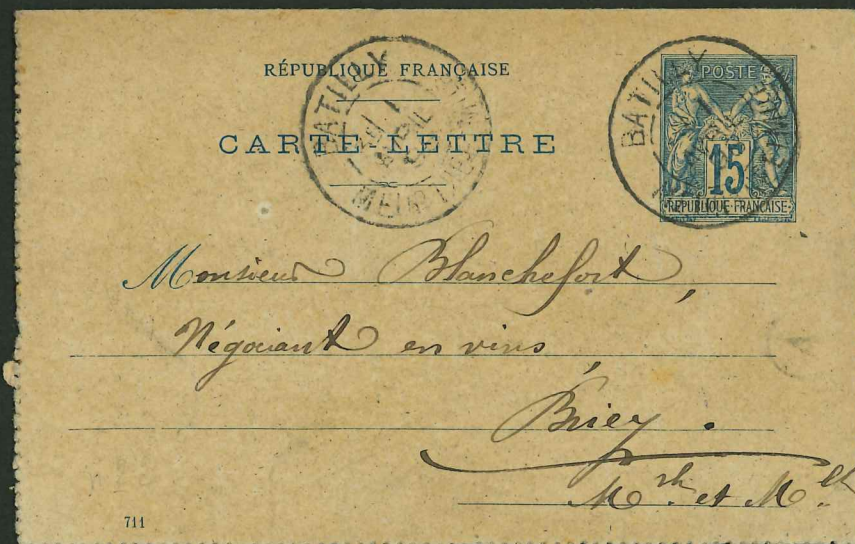 RÉPUBLIQUE FRANÇAISE
CARTE LETTRE
BATILLY
MEURTHE
BATILLY
POSTE
15
REPUBLIQUE FRANÇAISE
Monsieur Blanchefort,
Négociant en vins,
Briey.
Mrthe et Mlle
711